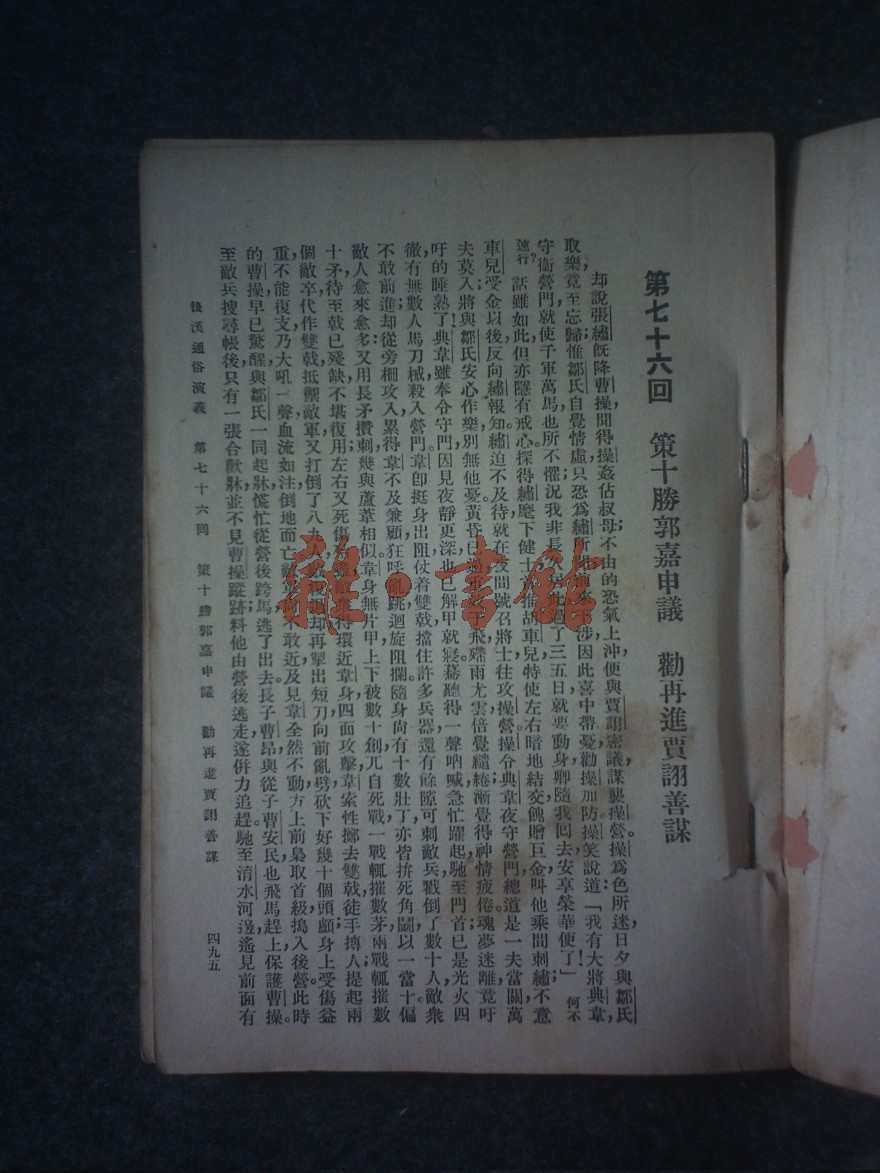 第七十六回　策十勝郭嘉申議　勸再進賈詡善謀
却說張繡旣降曹操，聞得操姦佔叔母，不由的恐氣上沖，便與賈詡密議，謀襲操營。操爲色所迷，日夕與鄒氏
取樂，竟至忘歸；惟鄒氏自覺情虛，只恐爲繡所 涉，因此喜中帶憂，勸操加防。操笑說道：「我有大將典韋，
守衛營門，就使千軍萬馬，也所不懼；況我非長 過了三五日，就要動身，卿隨我回去，安享榮華便了！」何不
速行？話雖如此，但亦隱有戒心。探得繡麾下健士，首推胡車兒，特使左右暗地結交，餽贈巨金，叫他乘間刺繡。不意
車兒受金以後，反向繡報知，繡迫不及待，就在夜間號召將士，往攻操營。操令典韋夜守營門，總道是一夫當關，萬
夫莫入，將與鄒氏安心作樂，別無他憂。黃昏已過， 飛 雨尤雲，倍覺繾綣，漸覺得神情疲倦，魂夢迷離，竟吁
吁的睡熟了。典韋雖奉令守門，因見夜靜更深，也已解甲就寢，驀聽得一聲吶喊，急忙躍起，馳至門首，已是光火四
徹，有無數人馬刀械，殺入營門。韋卽挺身出阻，仗着雙戟，擋住許多兵器，還有餘隙可刺敵兵，戳倒了數十人，敵衆
不敢前進，却從旁柵攻入，累得韋不及兼顧，狂呼亂跳，迴旋阻攔，隨身尙有十數壯丁，亦皆拚死角鬬，以一當十，偏
敵人愈來愈多，又用長矛攢刺，幾與蘆葦相似。韋身無片甲，上下被數十創，兀自死戰，一戰輒摧數茅，兩戰輒摧數
十矛，待至戟已殘缺，不堪復用，左右又死傷 得環近韋身，四面攻擊，韋索性擲去雙戟，徒手搏人，提起兩
個敵卒，代作雙戟，抵禦敵軍，又打倒了八九人， 却再掣出短刀，向前亂劈，砍下好幾十個頭顱，身上受傷益
重，不能復支，乃大吼一聲，血流如注，倒地而亡。敵軍尙不敢近，及見韋全然不動，方上前梟取首級，搗入後營。此時
的曹操，早已驚醒，與鄒氏一同起牀，慌忙從營後跨馬逃了出去，長子曹昂，與從子曹安民，也飛馬趕上，保護曹操。
至敵兵搜尋帳後，只有一張合歡牀，並不見曹操蹤跡，料他由營後逃走，遂併力追趕，馳至淯水河邊，遙見前面有
後漢通俗演義　第七十六回　策十勝郭嘉申議　勸再進賈詡善謀　四九五
雜·書館